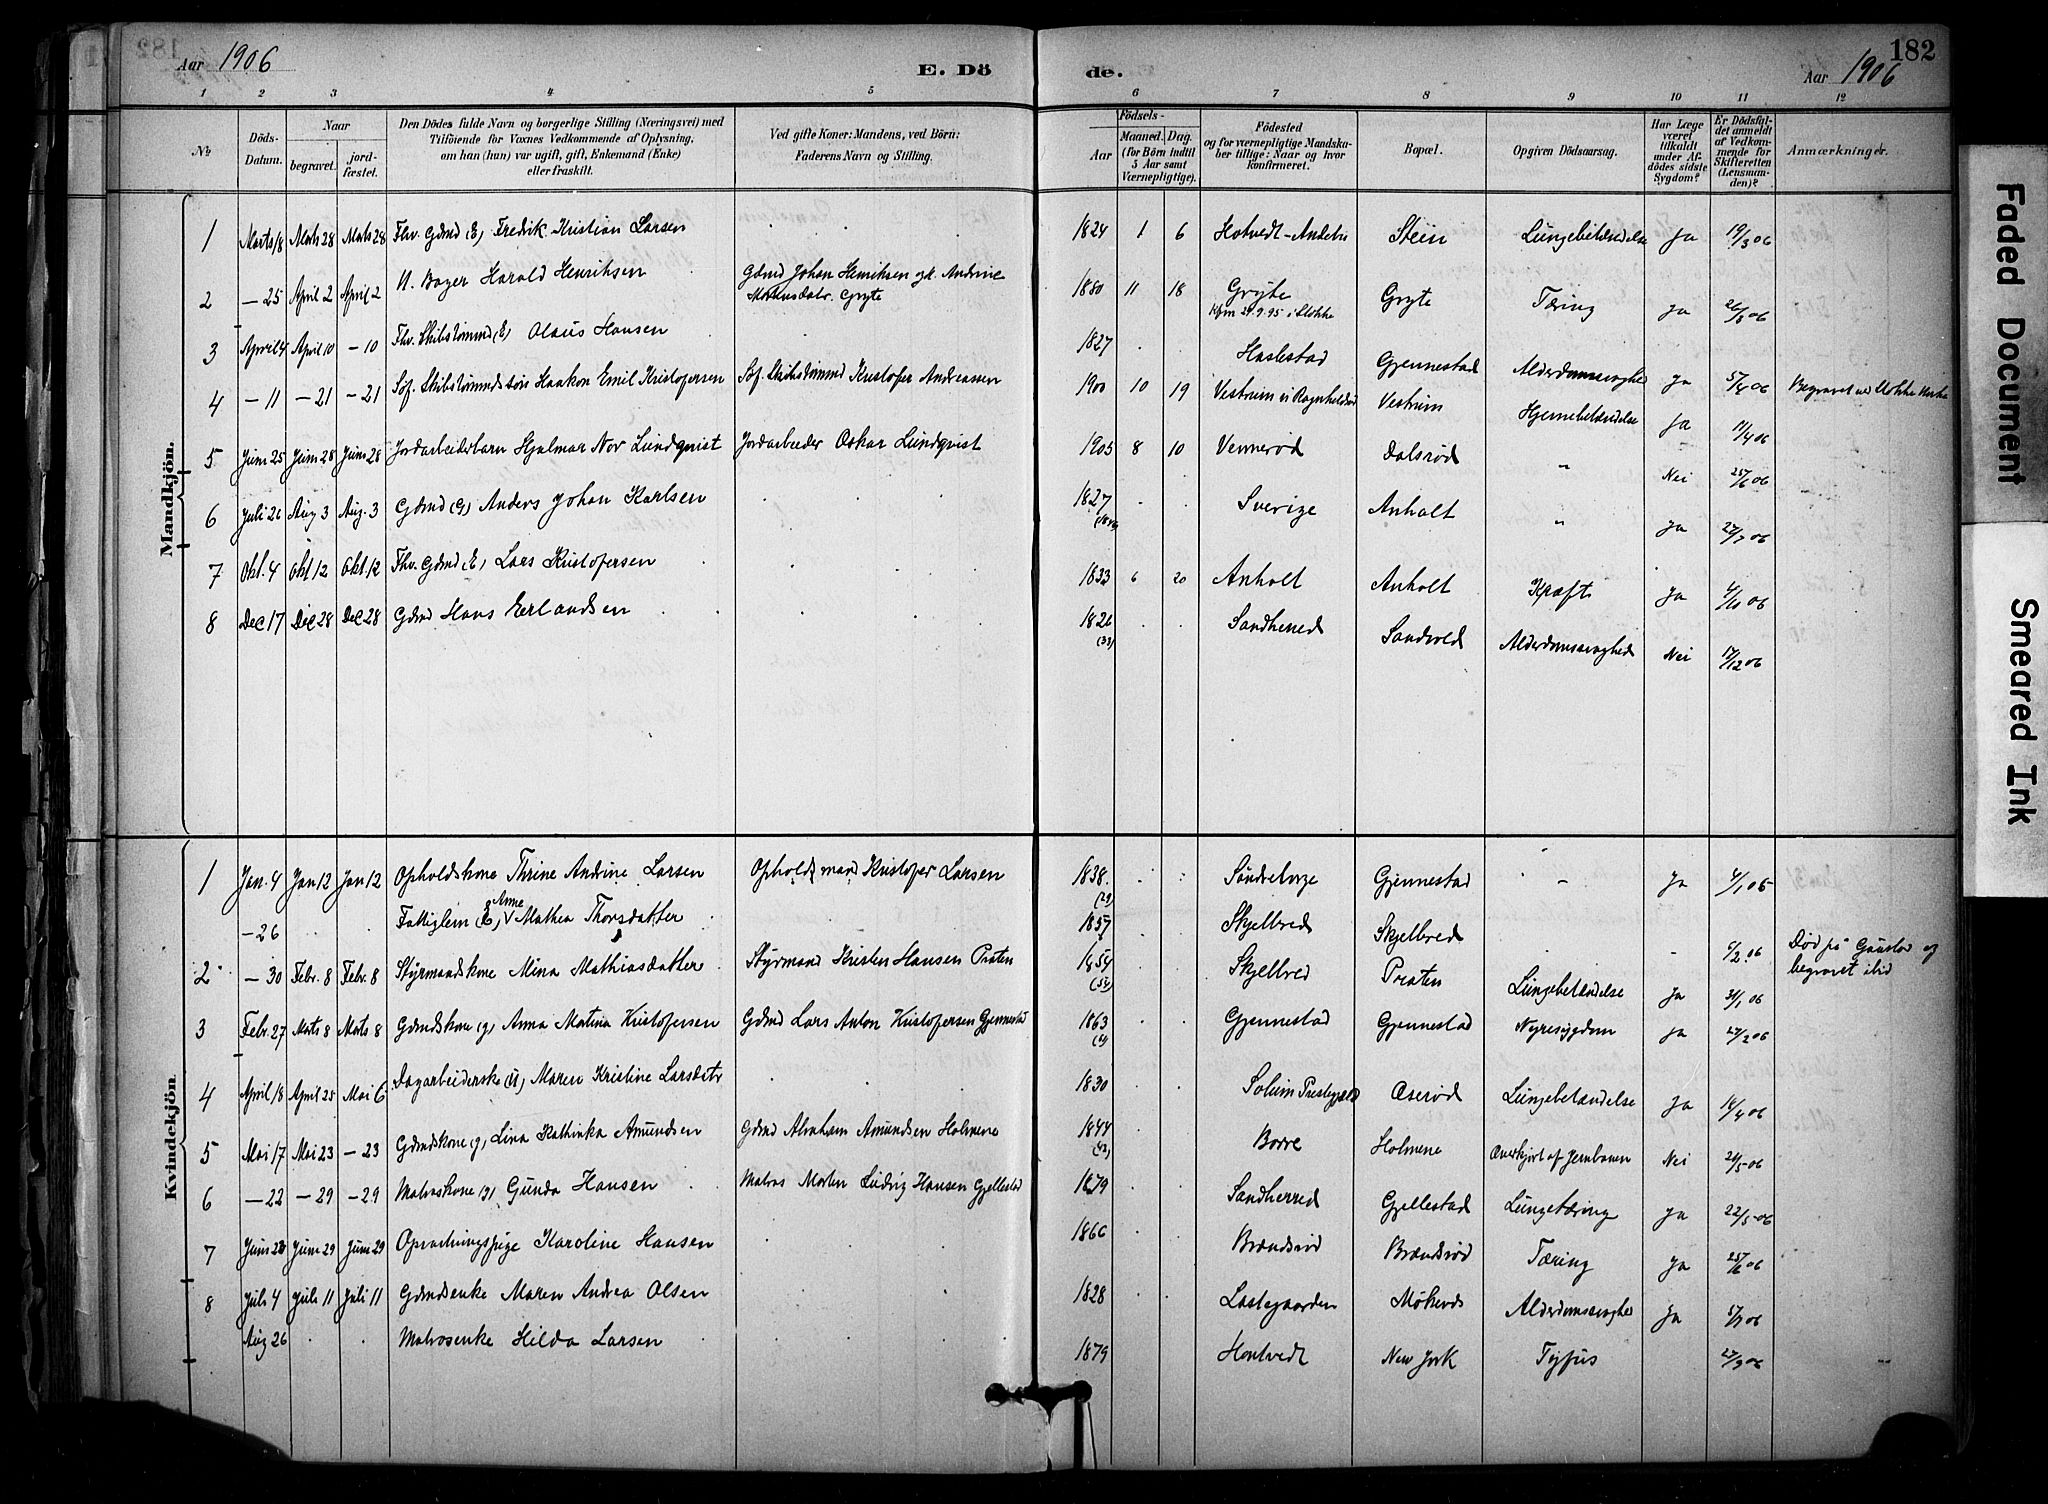 182
Aar 1906 E. Dö de. Aar 1906
1 2 3 4 5 6 7 8 9 10 11 12
No. Döds-Datum. Naar begravet. jordfæstet. Den Dödes fulde Navn og borgerlige Stilling (Næringsvei) med Tilföiende for Voxnes Vedkommende af Oplysning, om han (hun) var ugift, gift, Enkemand (Enke) eller fraskilt. Ved gifte Koner: Mandens, ved Börn: Faderens Navn og Stilling. Födsels- Aar Maaned. Dag. (for Börn indtil 5 Aar samt Værnepligtige). Födested og for værnepligtige Mandskaber tillige: Naar og hvor konfirmeret. Bopæl. Opgiven Dödsaarsag. Har Læge været tilkaldt under Afdödes sidste Sygdom? Er Dödsfaldet anmeldt af Vedkommende for Skifteretten (Lensmanden)? Anmærkninger.
Mandkjön.
1 Marts 18 Marts 28 Marts 28 Fhv. Gdmd (E) Fredik Kristian Larsen 1824 1 6 Hotvedt - Andebu Stein Lungebetændelse Ja 19/3 06
2 - 25 April 2 April 2 U. Bager Harald Henriksen Gdmd Johan Henriksen og k. Andrine Gryte 1880 11 18 Gryte i Stokke Gryte Tæring Ja 26/3 06
3 April 4 April 10 - 10 Fhv. Skibstømmd (E) Olaus Hansen 1827 Haslestad Gjennestad Alderdomssvaghed Ja 5/4 06
4 - 11 - 21 - 21 Søf. Skibstømmdssøn Haakon Emil Kristofersen Søf. Skibstømmd Kristofer Andreassen 1900 10 19 Vestrum Vestrum Hjernebetændelse Ja 11/4 06 Begravet ved Stokke Kirke
5 Juni 25 Juni 28 Juni 28 Jordarbeiderbarn Hjalmar Nor Lundqvist Jordarbeider Oskar Lundqvist 1905 8 10 Vennerød Dalsrød " Nei 25/6 06
6 Juli 26 Aug 3 Aug. 3 Gdmd (G) Anders Johan Karlsen 1827 Sverige Anholt " Ja 27/7 06
7 Okt. 4 Okt 12 Okt. 12 Fhv. Gdmd (E) Lars Kristofersen 1833 6 20 Anholt Anholt Kræft Ja 4/10 06
8 Dec 17 Dec 28 Dec 28 Gdmd Hans Erlandsen 1826 (33) Sandherred Sandvold Alderdomssvaghed Nei 17/12 06
Kvindekjön
1 Jan. 4 Jan 12 Jan 12 Opholdskone Thrine Andrine Larsen Opholdsmand Kristofer Larsen 1838. (29) Gjennestad - Ja 4/1 06
- 26 Fattiglem (E) Anne Mathea Thorsdatter 1857 Skjelbred Skjelbred - 6/2 06 Død på Gaustad og begravet ibid
2 - 30 Febr. 8 Febr. 8 Styrmandskone Mina Mathiasdatter Styrmand Kristen Hansen Præten 1854 (54) Skjelbred Præten Lungebetændelse Ja 31/1 06
3 Febr. 27 Marts 8 Marts 8 Gdmdskone (g) Anna Martina Kristofersen Gdmd Lars Anton Kristofersen Gjennestad 1863 Gjennestad Gjennestad Nyresygdom Ja 27/2 06
4 April 18 April 25 Mai 6 Dagarbeiderske (U) Maren Kristine Larsdatr 1830 Solum Prestegjæld Æserød Lungebetændelse Ja 18/4 06
5 Mai 17 Mai 23 - 23 Gdmdskone (g) Lina Kathinka Amundsen Gdmd Abraham Amundsen Holmene 1844 (42) Borre Holmene Overkjørt af Jernbanen Nei 20/5 06
6 - 22 - 29 - 29 Matroskone (g) Gunda Hansen Matros Morten Ludvig Hansen Gjellestad 1879 Sandherred Gjellestad Lungetæring Ja 22/5 06
7 Juni 23 Juni 29 Juni 29 Opvartningspige Karoline Hansen 1866 Brændsrød Brændsrød Tæring Ja 25/6 06
8 Juli 4 Juli 11 Juli 11 Gdmdsenke Maren Andrea Olsen 1828 Lastegaarden Alderdomssvaghed Ja 5/7 06
Aug 26 Matrosenke Hilda Larsen 1879 Hontvedt New York Tyfus 27/9 06
Faded Document
Smeared Ink